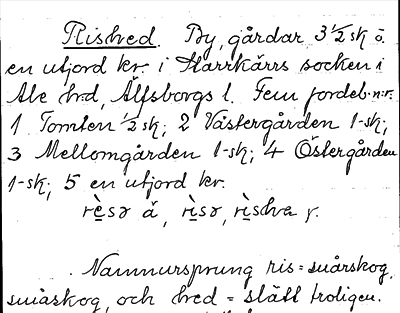 Rished. By, gårdar 3 1/2 sk ö.
en utjord kr. i Starrkärrs socken i
Ale hrd, Älfsborgs l. Fem jordeb.n:r.
1 Tomten 1/2 sk; 2 Västergården 1-sk;
3 Mellomgården 1-sk; 4 Östergården
1-sk; 5 en utjord kr.
Namnursprung ris = snårskog,
småskog, och hed = slätt troligen.